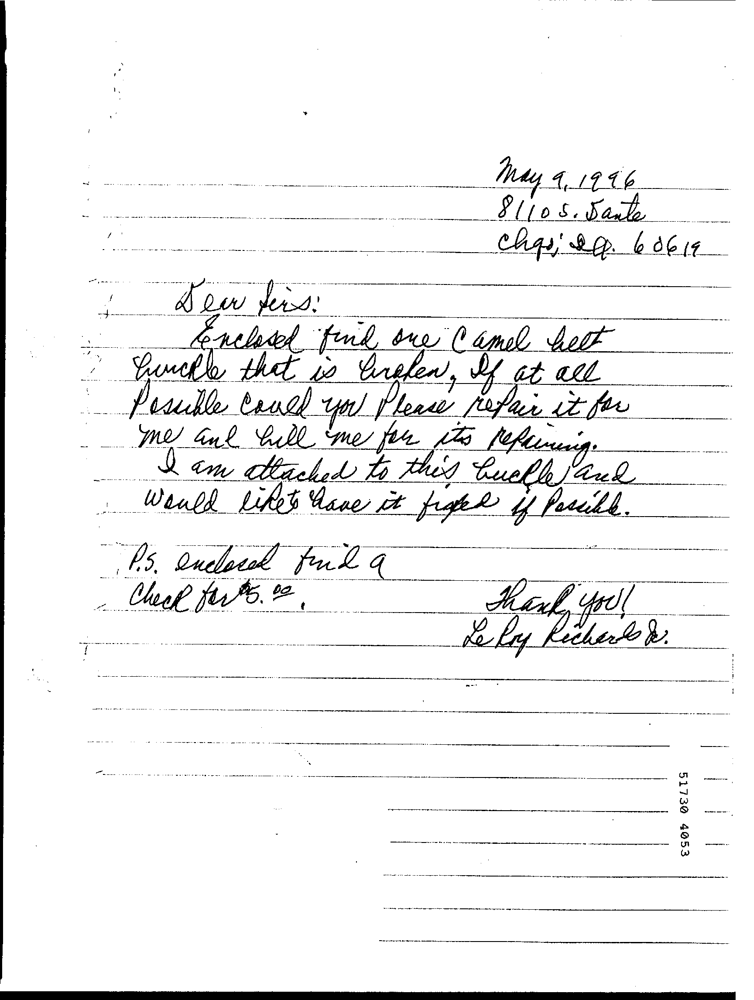 May 9, 1996
8110 S. Dante
Chgo; Ill. 60619
Dear Sirs:
Enclosed find one Camel belt
bunckle that is broken, If at all
Possible Could you Please repair it for
me and bill me for its repairing.
I am attached to this buckle and
would like to have it fixed if Possible.
P.S. enclosed find a
Check for $5.00.
Thank you!
Le Roy Richards Jr.
51730 4053